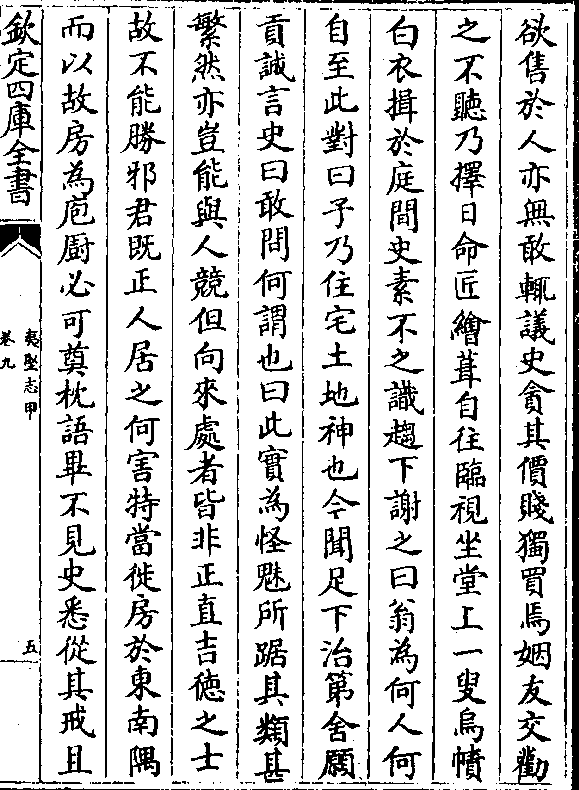 欲售於人亦無敢輒議史貪其價賤獨買焉姻友交勸
之不聽乃擇日命匠繪葺自往臨視坐堂上一叟烏幘
白衣揖於庭間史素不之識趨下謝之曰翁為何人何
自至此對曰予乃住宅土地神也今聞足下治第舍願
貢誠言史曰敢問何謂也曰此實為怪魅所踞其類甚
繁然亦豈能與人競但向來處者皆非正直吉徳之士
故不能勝邪君既正人居之何害特當徙房於東南隅
而以故房為庖厨必可奠枕語畢不見史悉從其戒且
欽定四庫全書
夷堅志甲
卷九
五